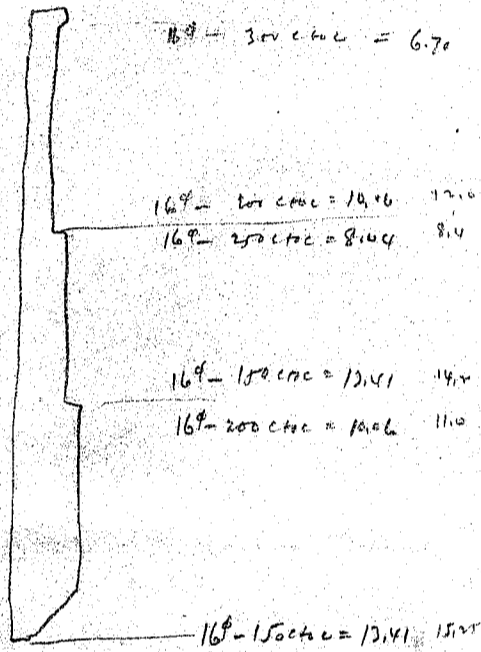 16ϕ - 300 c to c = 6.70
16ϕ - 200 c to c = 10.06 12.0
16ϕ - 250 c to c = 8.04 8.4
16ϕ - 150 c to c = 13.41
16ϕ - 200 c to c = 10.06 11.0
16ϕ - 150 c to c = 13.41 15.25